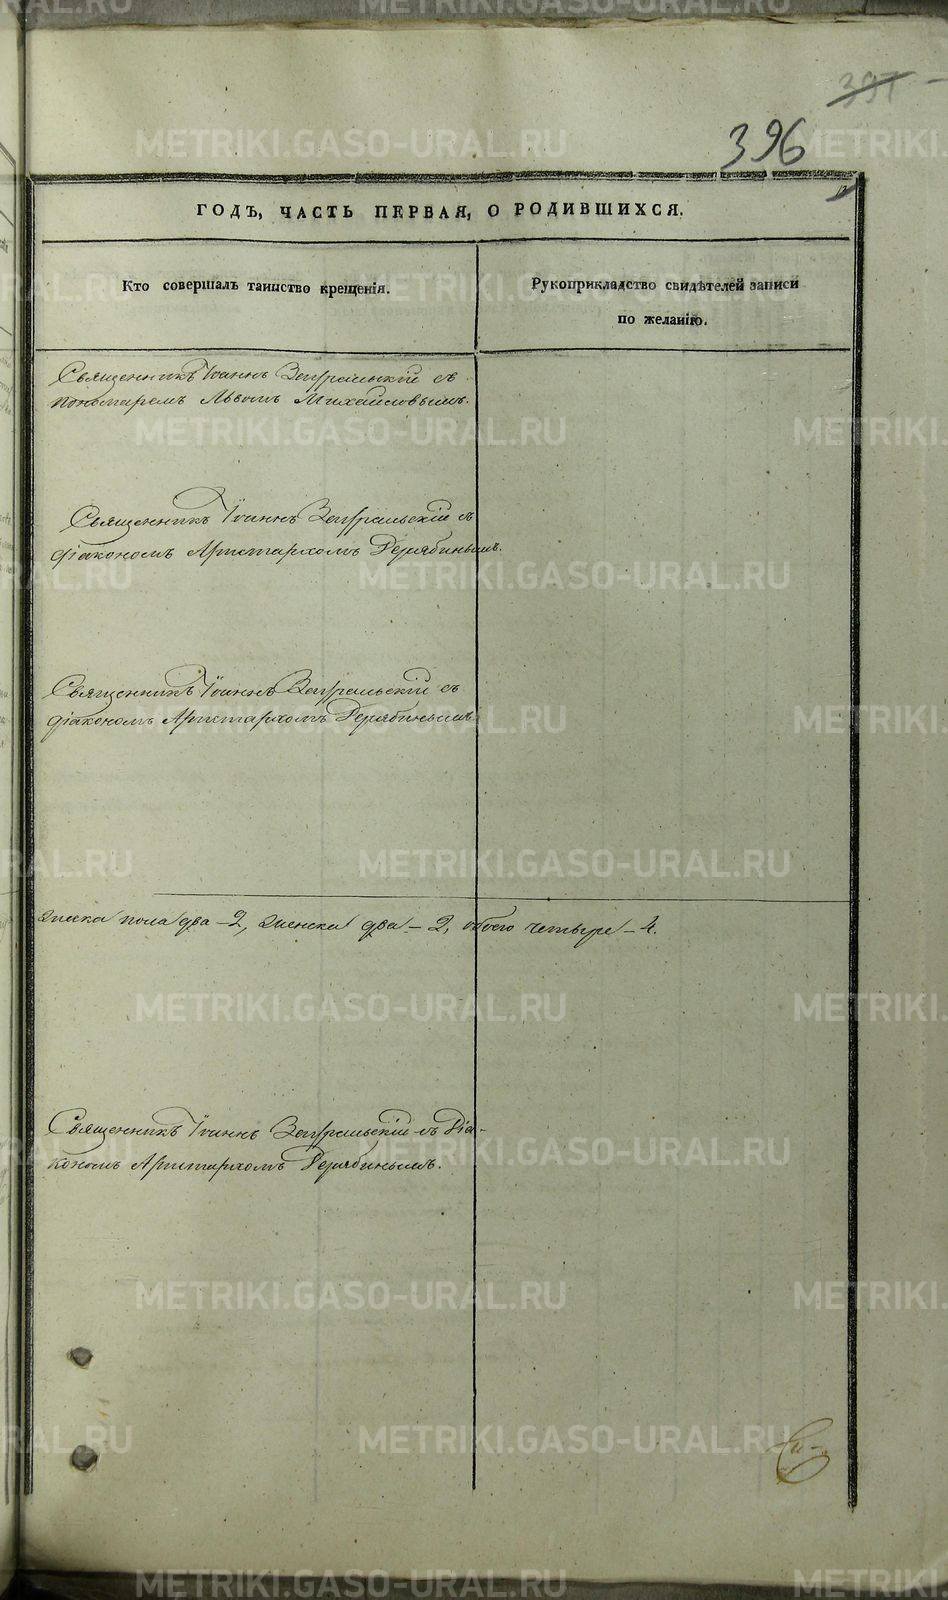 396
ГОДЪ, ЧАСТЬ ПЕРВАЯ, О РОДИВШИХСЯ.
Кто совершалъ таинство крещенія.
Рукоприкладство свидѣтелей записи
по желанію.
Священникъ Іоаннъ съ
пономаремъ Львомъ Михайловымъ.
Священникъ Іоаннъ съ
діакономъ Аристархомъ Дерябинымъ.
Священникъ Іоаннъ съ
діакономъ Аристархомъ Дерябинымъ.
мужеска пола два – 2, женска два – 2, обоего четыре – 4.
Священникъ Іоаннъ съ Діа-
кономъ Аристархомъ Дерябинымъ.
METRIKI.GASO-URAL.RU